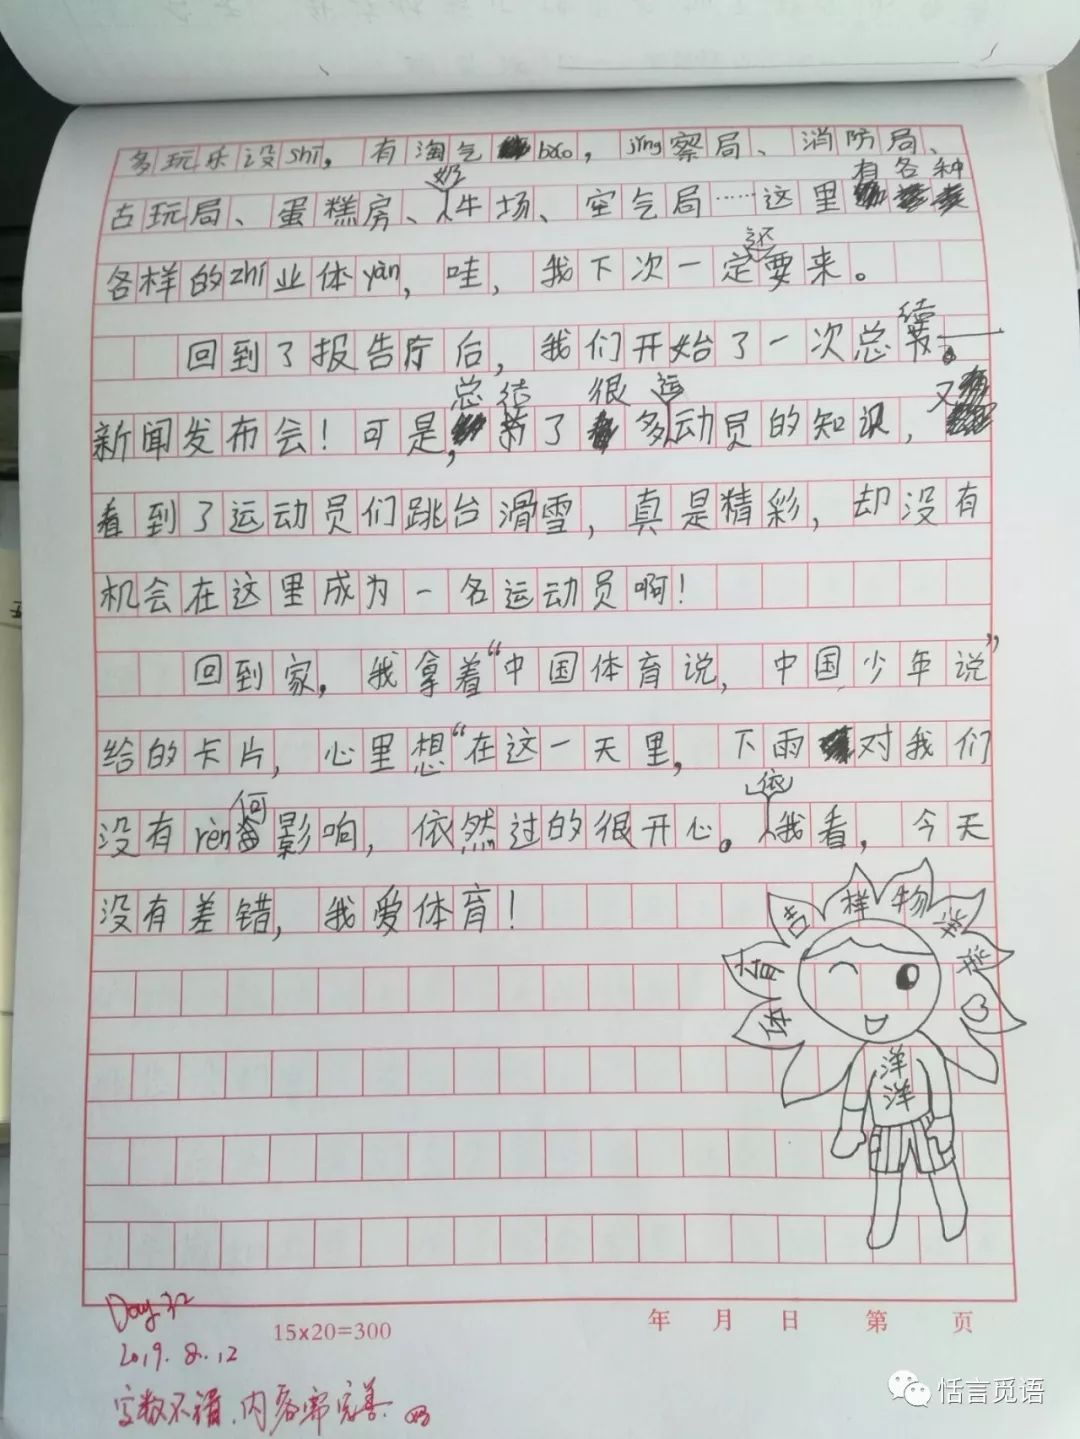 多玩乐设shī，有淘气bǎo，jǐng察局、消防局、
古玩局、蛋糕房、奶牛场、空气局……这里有各种
各样的zhí业体yàn，哇，我下次一定还要来。
回到了报告厅后，我们开始了一次总结——
新闻发布会！可是，总结了很多运动员的知识，又
看到了运动员们跳台滑雪，真是精彩，却没有
机会在这里成为一名运动员啊！
回到家，我拿着“中国体育说，中国少年说”
给的卡片，心里想“在这一天里，下雨对我们
没有rèn何影响，依然过的很开心。依我看，今天
没有差错，我爱体育！
体育吉祥物
洋洋
Day 32
2019.8.12
15x20=300
年 月 日 第 页
字数不错，内容需完善.
恬言觅语